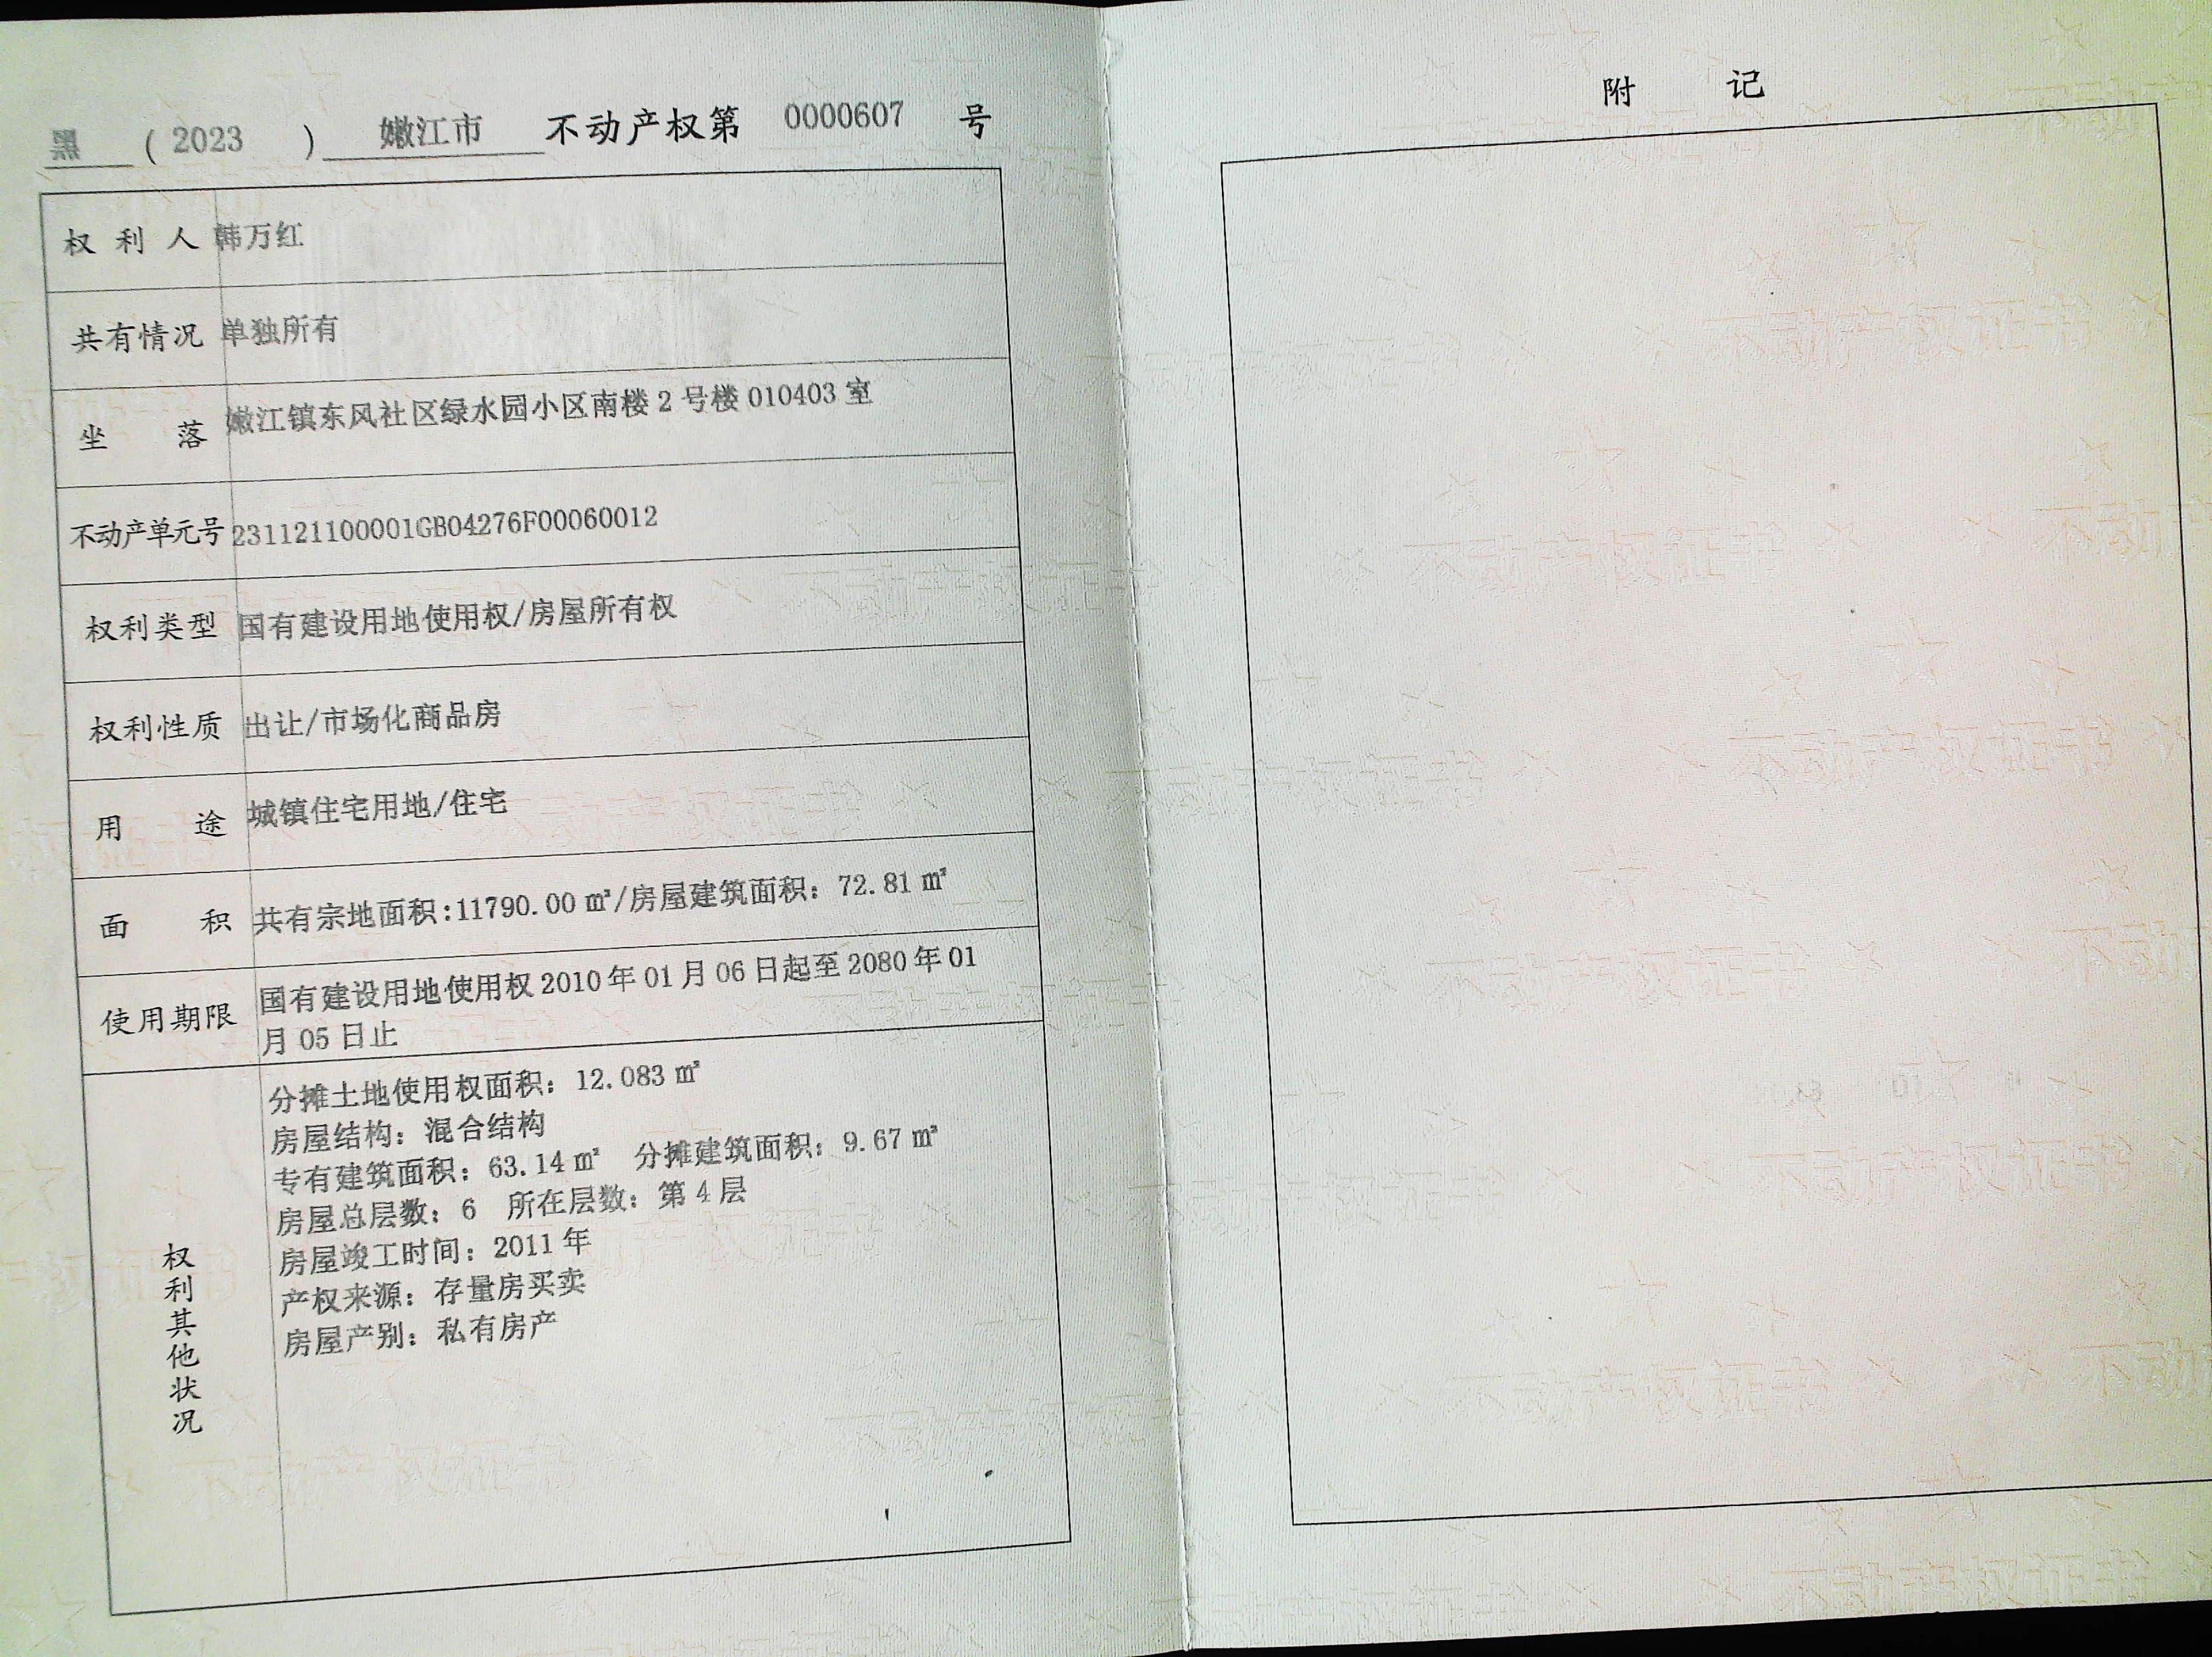 黑 ( 2023 ) 嫩江市 不动产权第 0000607 号
权利人 韩万红
共有情况 单独所有
坐落 嫩江镇东风社区绿水园小区南楼 2 号楼 010403 室
不动产单元号 231121100001GB04276F00060012
权利类型 国有建设用地使用权/房屋所有权
权利性质 出让/市场化商品房
用途 城镇住宅用地/住宅
面积 共有宗地面积:11790.00 ㎡/房屋建筑面积：72.81 ㎡
使用期限 国有建设用地使用权 2010 年 01 月 06 日起至 2080 年 01
月 05 日止
权利其他状况
分摊土地使用权面积：12.083 ㎡
房屋结构：混合结构
专有建筑面积：63.14 ㎡ 分摊建筑面积：9.67 ㎡
房屋总层数：6 所在层数：第 4 层
房屋竣工时间：2011 年
产权来源：存量房买卖
房屋产别：私有房产
附 记